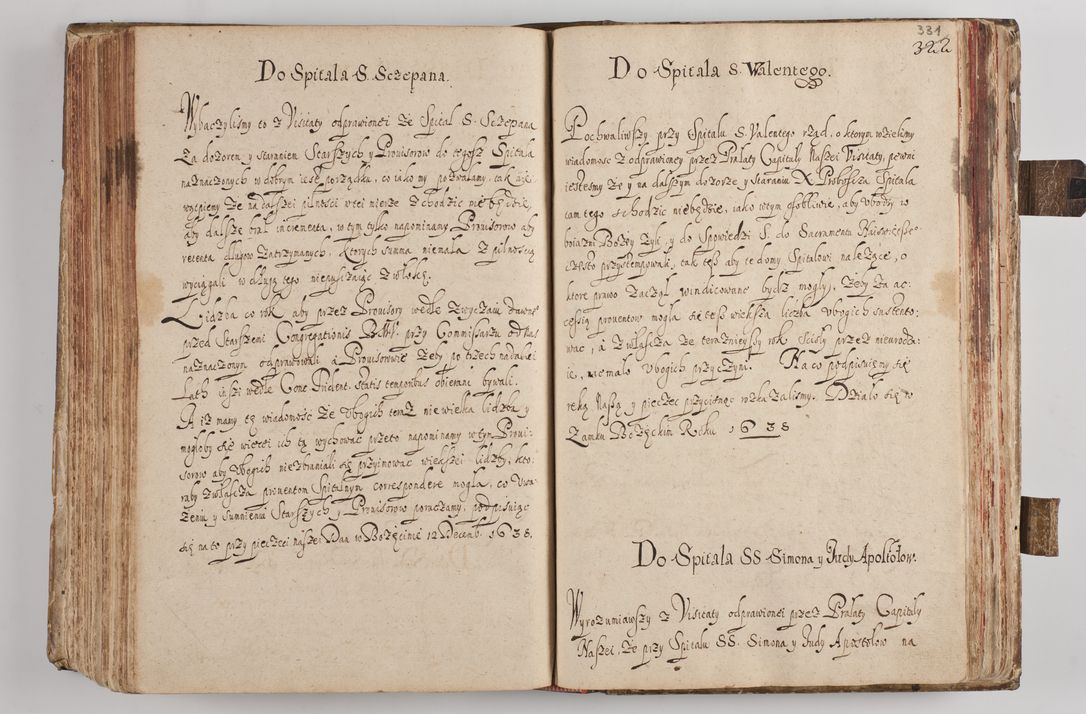 Do Spitala S. Sczepana.
Wybaczylismy to z Visitaty odprawionei że Spital S. Sczepana
Za dozorem y staraniem Starszych y Provisorow do tegosz Spitala
naznaczonych w dobrym iest porządku, co iako my pochwalamy, tak nie
wątpiemy że na dalszei pilności w tei mierze schodzic nie będzie
aby dalsze brał incrementa, w tym tylko napominamy Provisorow aby
retenta długow zatrzymanych, ktorych summa niemala z pilnością
wyciągali w dłusz tego niepuszczaiąc zwłokę.
Liczba co rok aby przez Provisory wedle zwyczaiu dawne°
przed Starszemi Congregationis BMV. przy Commissarzu od Nas
naznaczonym odprawowali a Provisorowie żeby po trzech nadalei
Lath inszi wedle Conc Trident. statis temporibus obierani bywali.
A iż mamy tę wiadomosc że Vbogich teraz niewielka liczba y
mogłoby się więcei ich tą wychowac przeto napominamy w tym Provi:
sorow aby Vbogich niezbraniali się przyimowac większei liczby, kto:
raby zwłascza proventom Spitalnym correspondere mogła, co Vwa:
żeniu y sumnieniu Starszych y Provisorow poruczamy, podpisuiąc
się na to przy pieczęci naszei Dan w Bożęcinie 12 Decemb. 1638.
331
322
Do Spitala S. Walentego.
Pochwaliwszy przy Spitalu S. Valentego rząd, o ktorym wzielismy
wiadomosc z odprawioney przez Prałaty Capituły Naszei Visitaty, pewni
iestesmy że y na dalszym dozorze y staraniu X Proboszcza Spitala
tamtego schodzic niebędzie, iako w tym osobliwie, aby Vbodzy w
boiazni Bozey żyli, y do Spowiedzi S. do Sacramentu Naiswiętsze°
często przystempowali, tak tesz aby te domy Spitalowi należące, o
ktore prawo zaczął windicowane bydz mogły, żeby za ac:
cessią proventow mogla się tesz większa liczba Vbogich sustento:
wac, a zwłascza że teraznieyszy rok scisły przez nieurodza:
ie, niemalo Vbogich przyczyni. Na co podpisuięmy się
ręką Naszą y pieczęc przycisnąc rozkazalismy. Działo się w
Zamku Bożęckim Roku 1638
Do Spitala SS Simona y Judy Apostołow.
Wyrozumiawszy z Visitaty odprawionei przez Prałaty Capituły
Naszei, że przy Spitalu SS. Simona y Judy Apostolow na